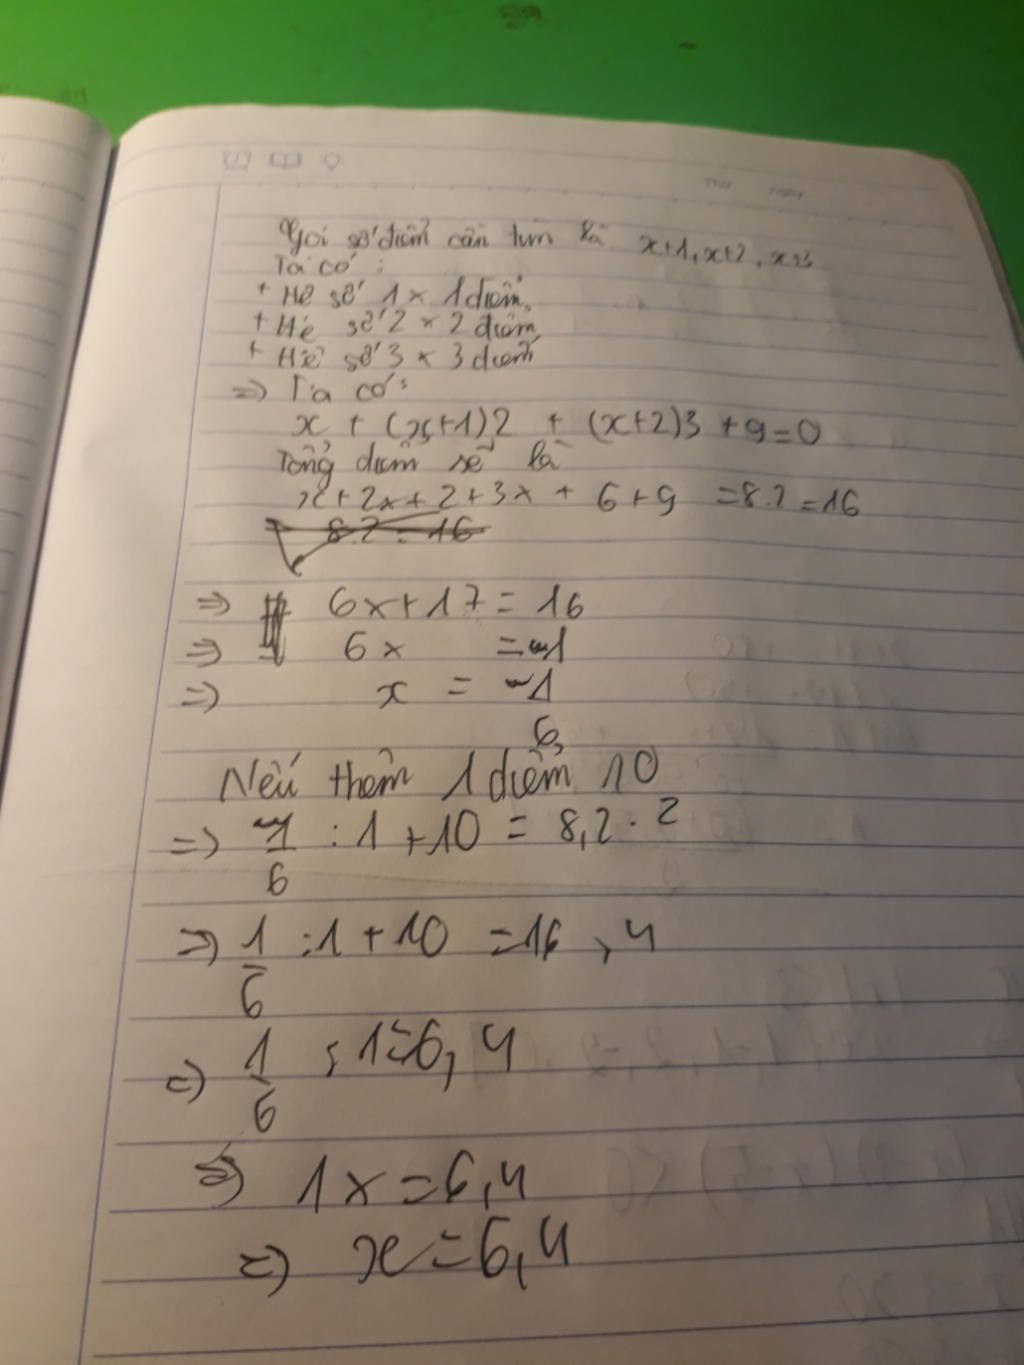 Thứ ngày
Gọi số điểm cần tìm là x+1, x+2, x+3
Ta có :
+ Hệ số 1 x 1 điểm,
+ Hệ số 2 x 2 điểm,
+ Hệ số 3 x 3 điểm
=> Ta có:
x + (x+1)2 + (x+2)3 +9=0
Tổng điểm sẽ là
x+2x+2+3x + 6+9 =8.2=16
8.2 = 16
=> 6x+17= 16
=> 6x =-1
=> x = -1
6,
Nếu thêm 1 điểm 10
=> -1/6 : 1 +10 = 8,2 . 2
=> 1/6 :1 +10 =16,4
=> 1/6 : 1=6,4
=> 1x=6,4
=> x=6,4